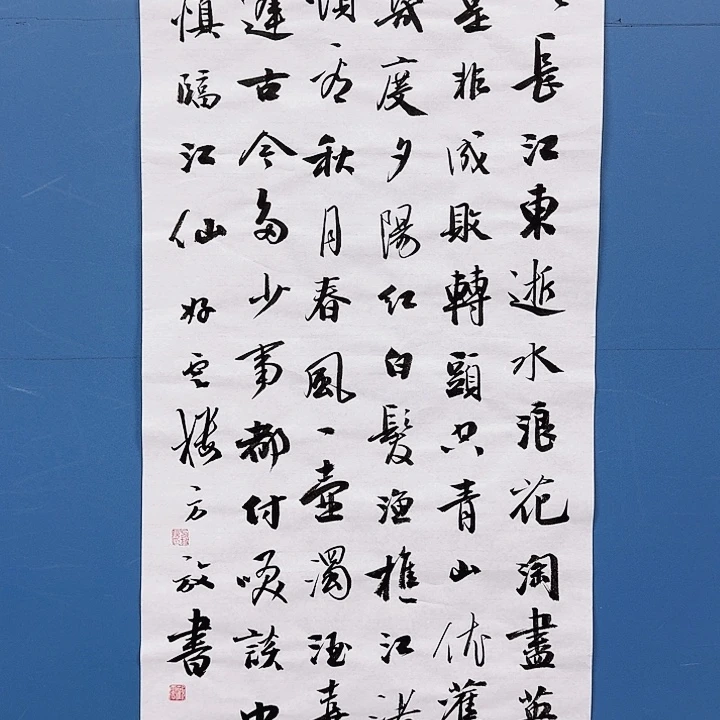 長江東逝水浪花淘盡英
是非成敗轉頭空青山依舊
幾度夕陽紅白髮漁樵江渚
慣看秋月春風一壺濁酒喜
逢古今多少事都付咲談中
慎臨江仙 好雲樓方放書